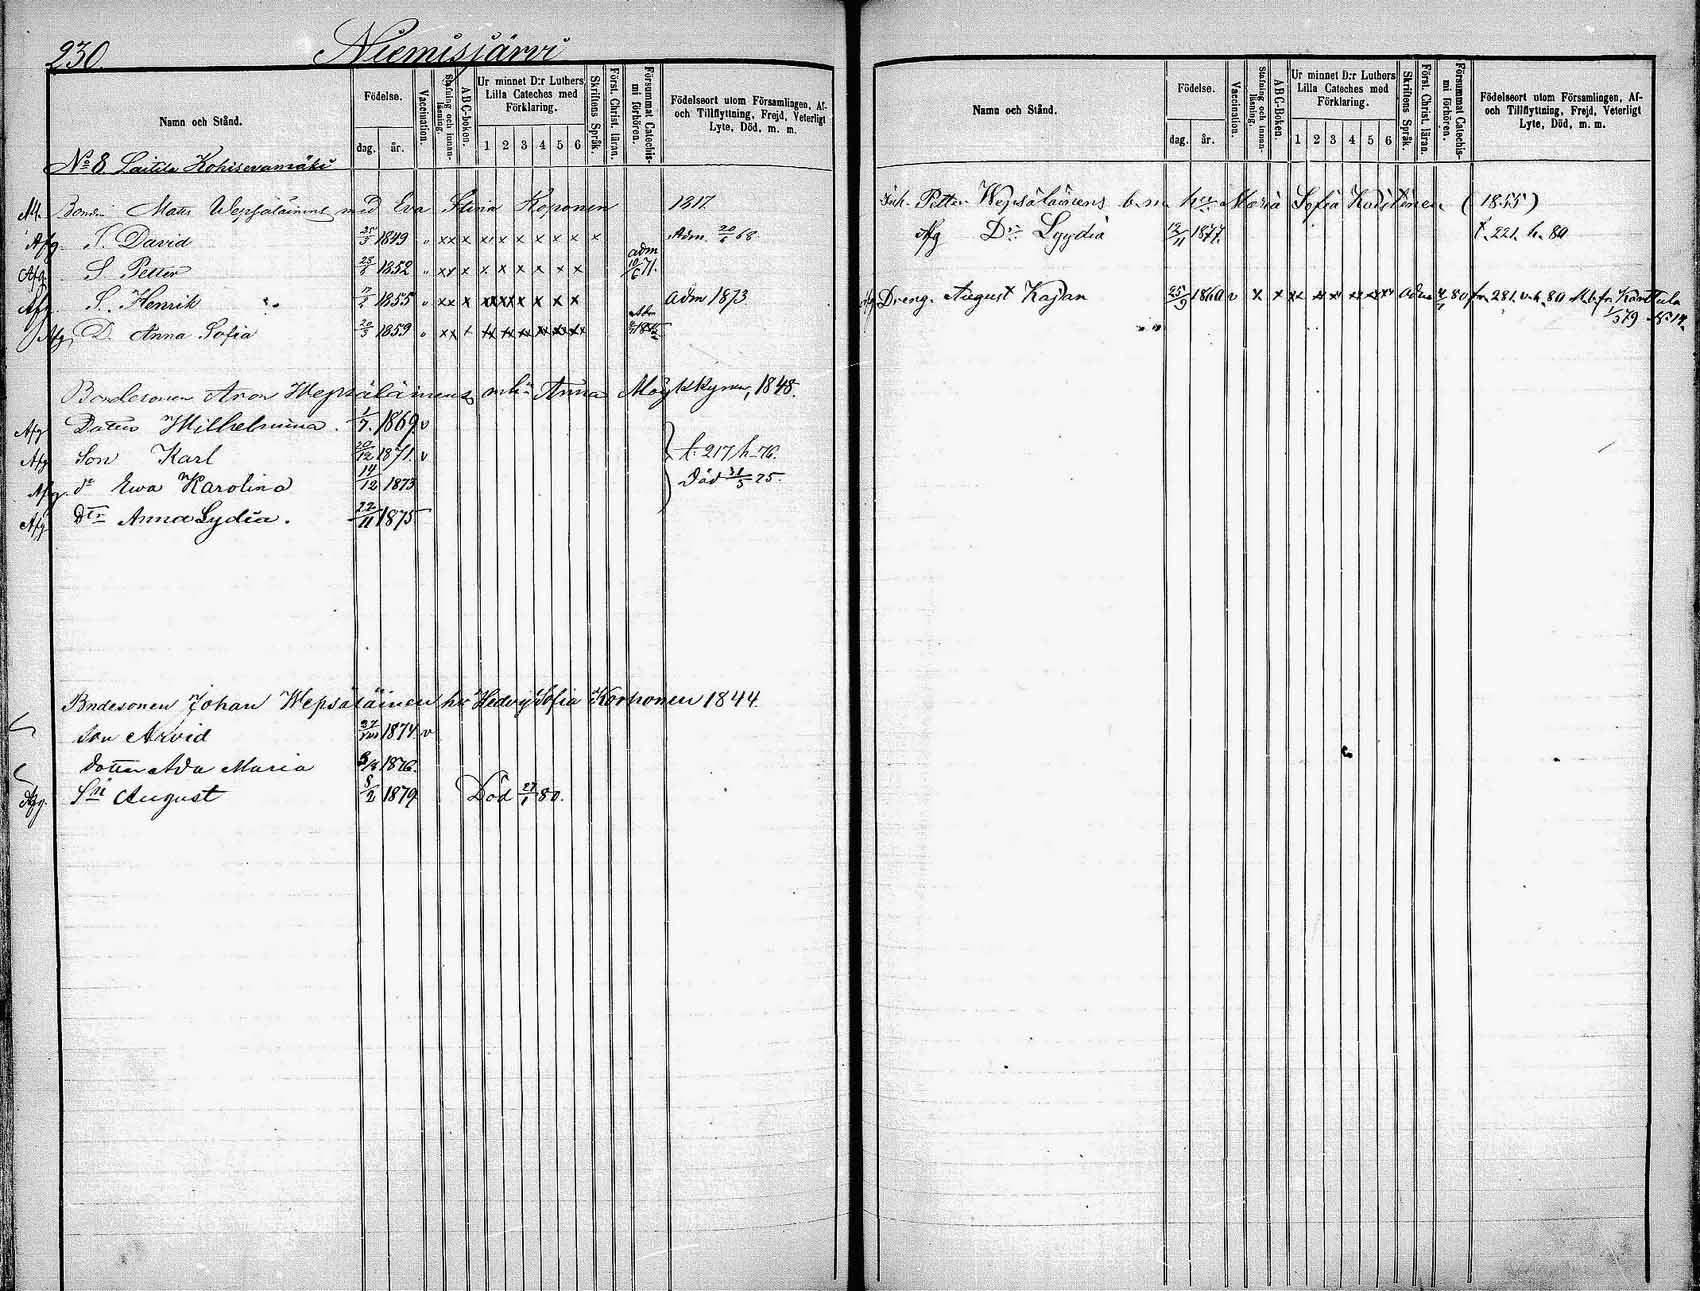 230. Niemisjärvi
Namn och Stånd.
Födelse.
dag. år.
Vaccination.
Stafning och innanläsning.
ABC-boken.
Ur minnet D:r Luthers Lilla Cateches med Förklaring.
1 2 3 4 5 6
Skriftens Språk.
Först. Christ. läran.
Försummat Catechismi förhören.
Födelseort utom Församlingen, Af- och Tillflyttning, Frejd, Veterligt Lyte, Död, m. m.
No 8 Laitila
Matts Wepsäläinens med Eva Stina Koponen 1817.
Afg. S. David 1849 " xx x x x x x x x x Adm. 20/6 68
Afg. S Petter 1852 " xx x x x x x x x adm 10/6 71.
Afg. S. Henrik 1855 " xx x x x x x x Adm 1873.
Afg. D. Anna Sofia 20/3 1859 " xx x
Bondesonen Aron Wepsäläinens Anna 1848.
Afg. Datter Wilhelmina. 1/7. 1869. v
Afg. Son Karl 20/12 1871. v f. 217 h-76.
Afg. dr Ewa Karolina 14/12 1873 Död 31/5 75.
Afg. Dtr Anna Lydia. 22/11 1875
Bndesonen Johan Wepsäläinen h. Hedvig Sofia Korhonen 1844.
Son Arvid 1874. v
dotter Ada Maria 1876.
Afg. Sn August 8/2 1879. Död 27/1 80.
Namn och Stånd.
Födelse.
dag. år.
Vaccination.
Stafning och innanläsning.
ABC-boken.
Ur minnet D:r Luthers Lilla Cateches med Förklaring.
1 2 3 4 5 6
Skriftens Språk.
Först. Christ. läran.
Försummat Catechismi förhören.
Födelseort utom Församlingen, Af- och Tillflyttning, Frejd, Veterligt Lyte, Död, m. m.
Petter Wepsäläinens Maria Sofia (1855)
Afg Dr Lydia 1877. f. 221. h. 80
Afg Dreng. August Kajan 25/9 1860 v x x fr. 281. h. 80 fr Karttula